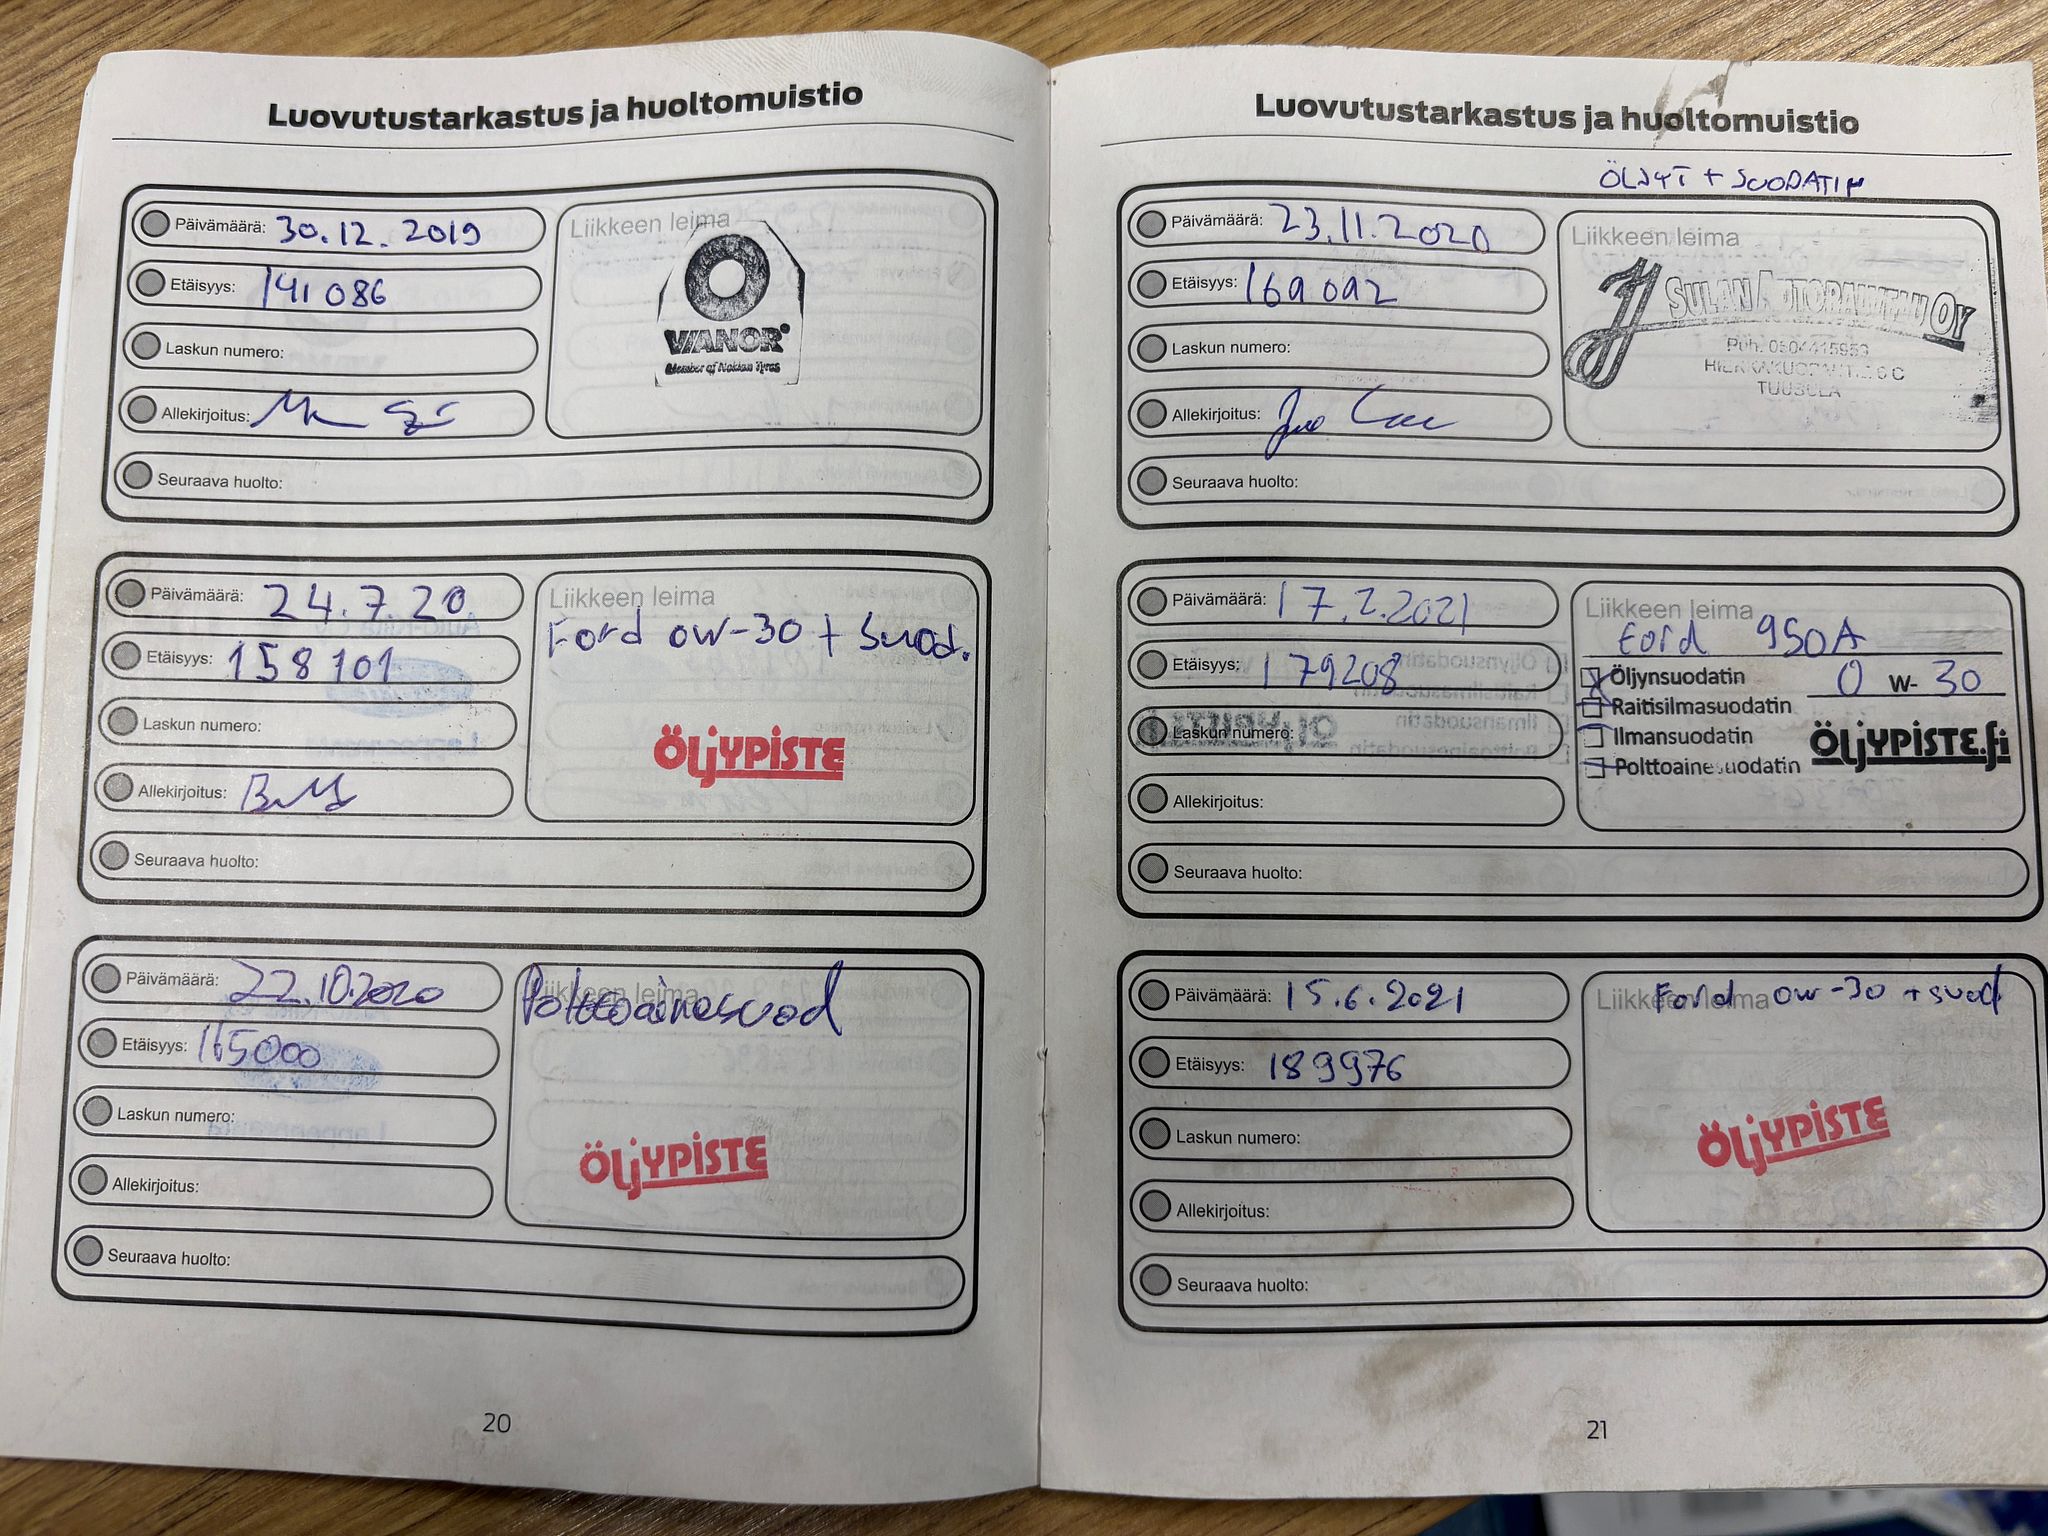 Luovutustarkastus ja huoltomuistio
Päivämäärä: 30.12.2019
Etäisyys: 141086
Laskun numero:
Allekirjoitus:
Seuraava huolto:
Liikkeen leima
VIANOR
Member of Nokian Tyres
Päivämäärä: 24.7.20
Etäisyys: 158101
Laskun numero:
Allekirjoitus:
Seuraava huolto:
Liikkeen leima
Ford 0w-30 + Suod.
ÖLJYPISTE
Päivämäärä: 22.10.2020
Etäisyys: 165000
Laskun numero:
Allekirjoitus:
Seuraava huolto:
Liikkeen leima
Polttoainesuod
ÖLJYPISTE
20
Luovutustarkastus ja huoltomuistio
ÖLJYT + SUODATIN
Päivämäärä: 23.11.2020
Etäisyys: 169092
Laskun numero:
Allekirjoitus:
Seuraava huolto:
Liikkeen leima
SULAN AUTOPALVELU OY
Puh. 0504415953
TUUSULA
Päivämäärä: 17.2.2021
Etäisyys: 179208
Laskun numero:
Allekirjoitus:
Seuraava huolto:
Liikkeen leima
Ford 950A
Öljynsuodatin 0 W- 30
Raitisilmasuodatin
Ilmansuodatin
Polttoainesuodatin
ÖLJYPISTE.fi
Päivämäärä: 15.6.2021
Etäisyys: 189976
Laskun numero:
Allekirjoitus:
Seuraava huolto:
Liikkeen leima
Ford 0w-30 + suod
ÖLJYPISTE
21